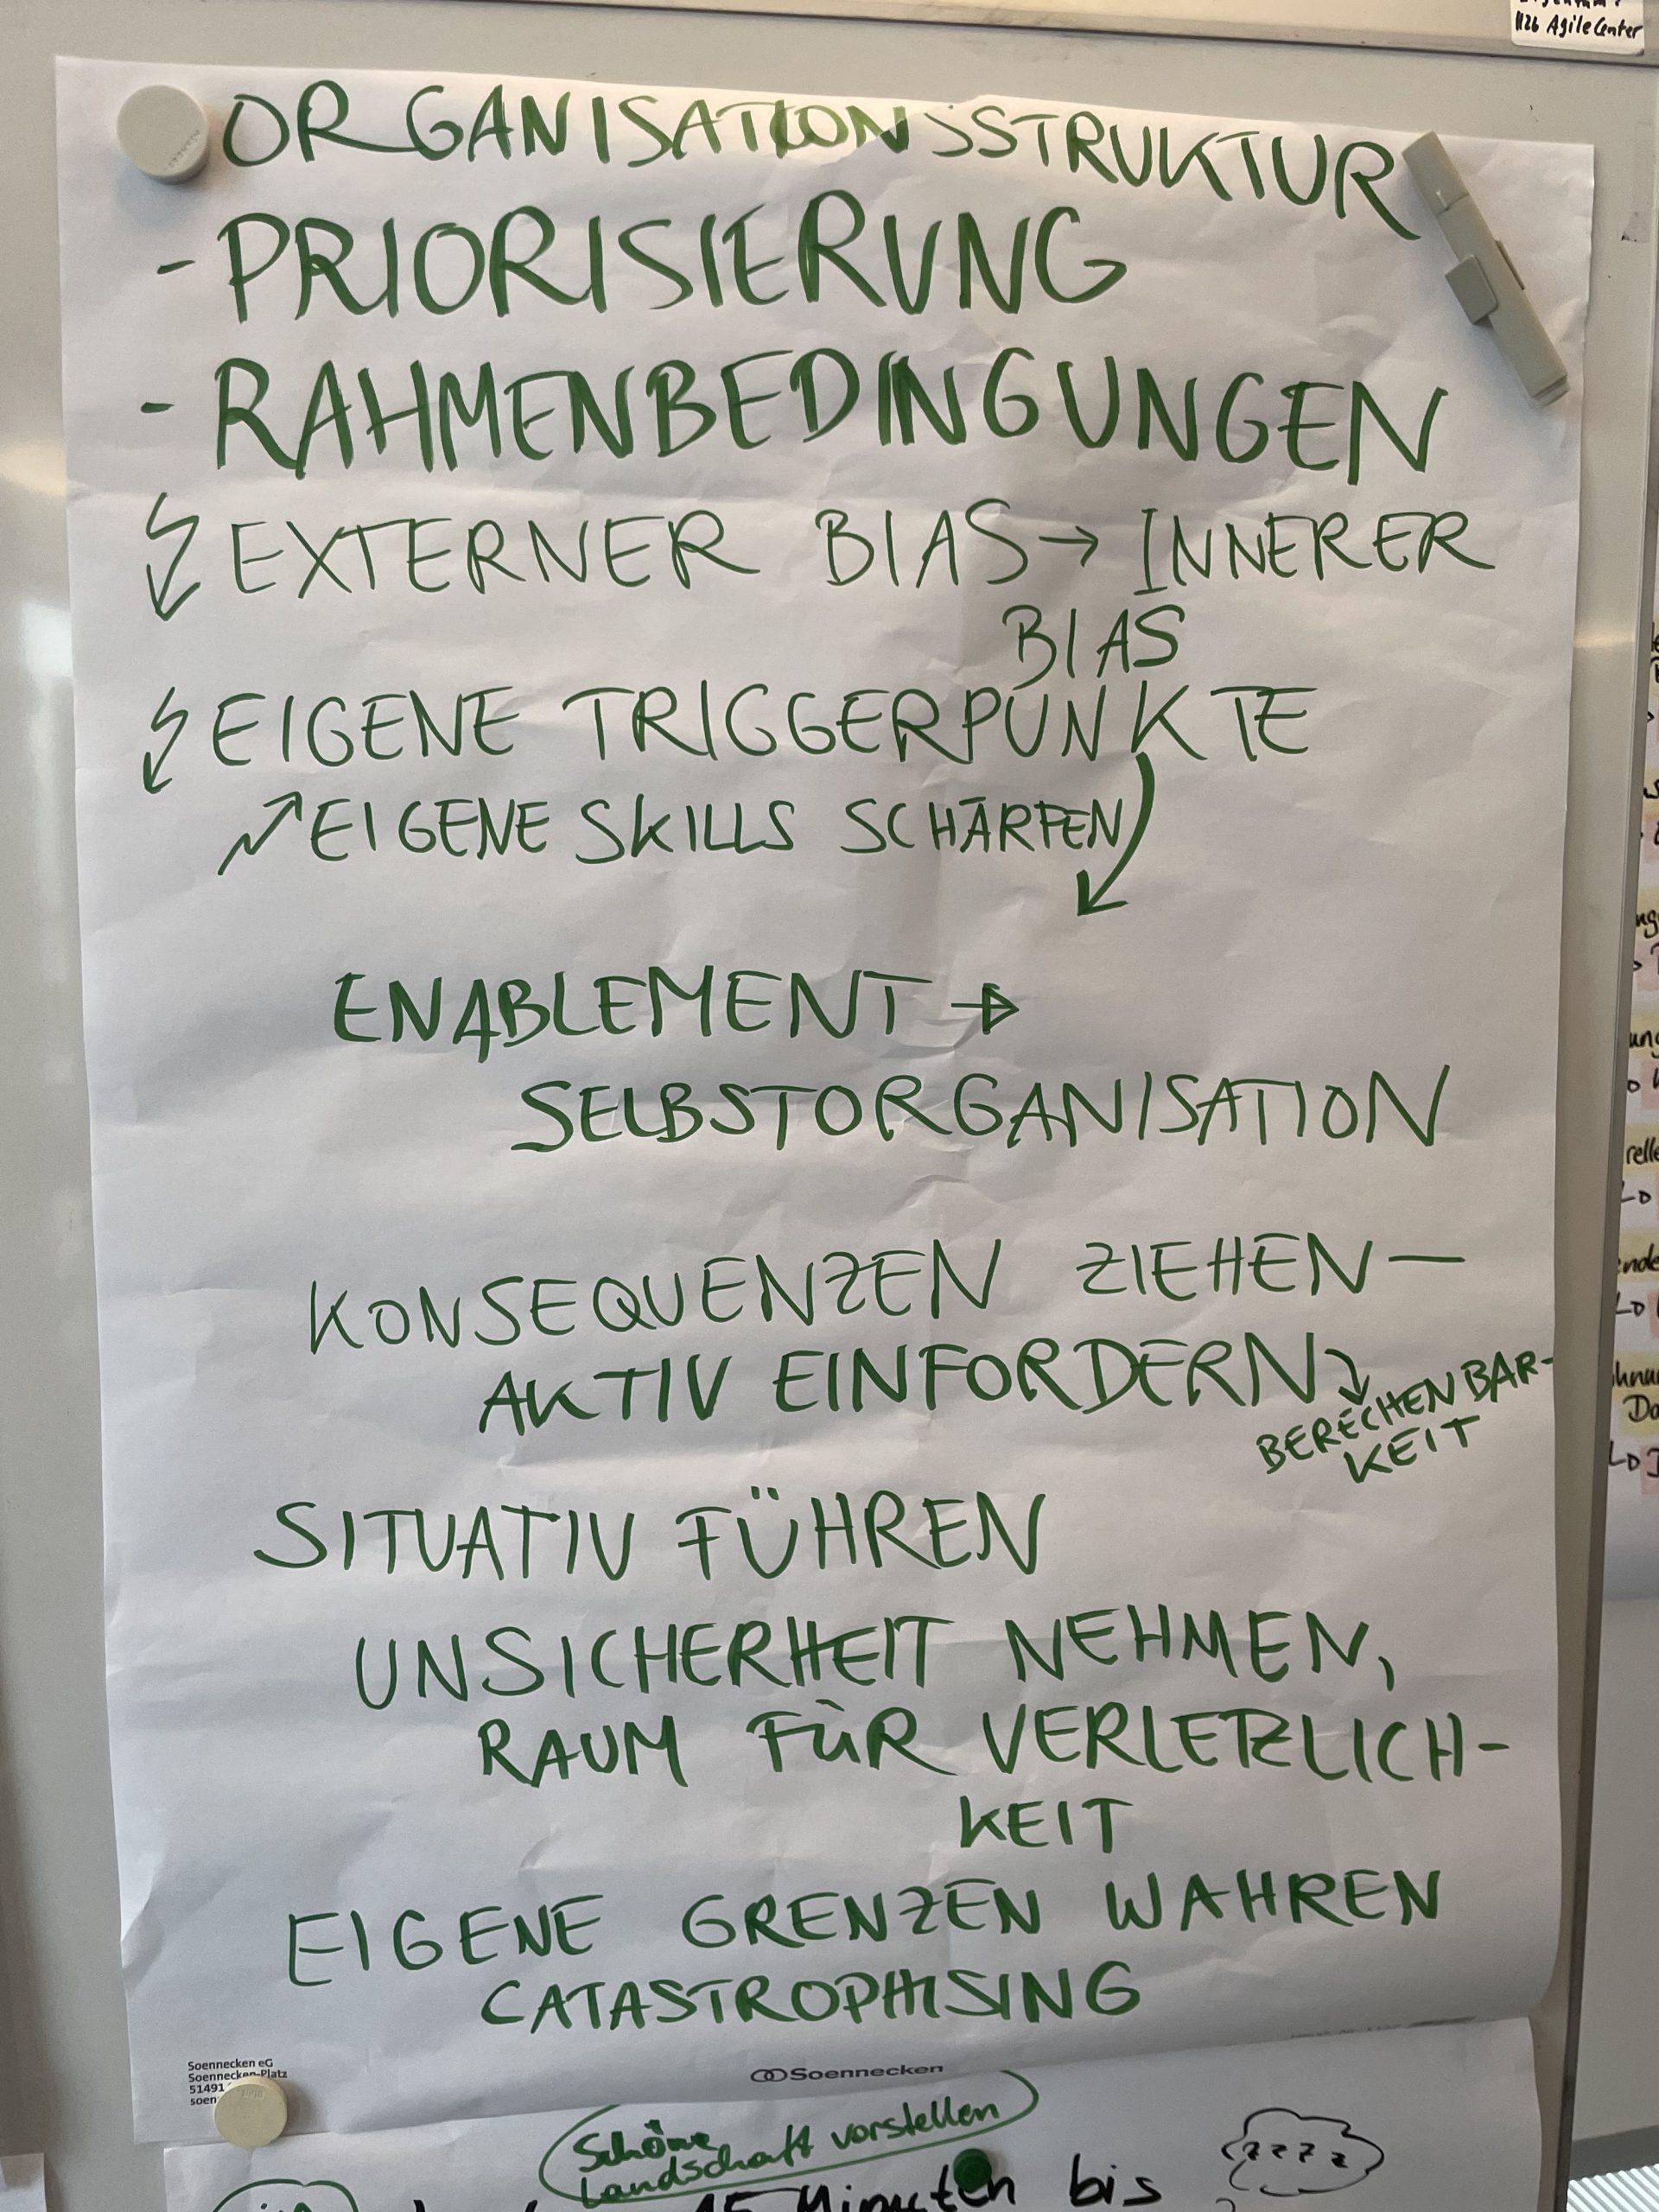 H26 Agile Center
ORGANISATIONSSTRUKTUR
- PRIORISIERUNG
- RAHMENBEDINGUNGEN
EXTERNER BIAS → INNERER
BIAS
EIGENE TRIGGERPUNKTE
↗ EIGENE SKILLS SCHÄRFEN
ENABLEMENT →
SELBSTORGANISATION
KONSEQUENZEN ZIEHEN —
AKTIV EINFORDERN
BERECHENBAR-
KEIT
SITUATIV FÜHREN
UNSICHERHEIT NEHMEN,
RAUM FÜR VERLETZLICH-
KEIT
EIGENE GRENZEN WAHREN
CATASTROPHISING
Soennecken eG
Soennecken-Platz
51491
soen
Soennecken
Schöne
Landschaft vorstellen
15 Minuten bis
zzzz